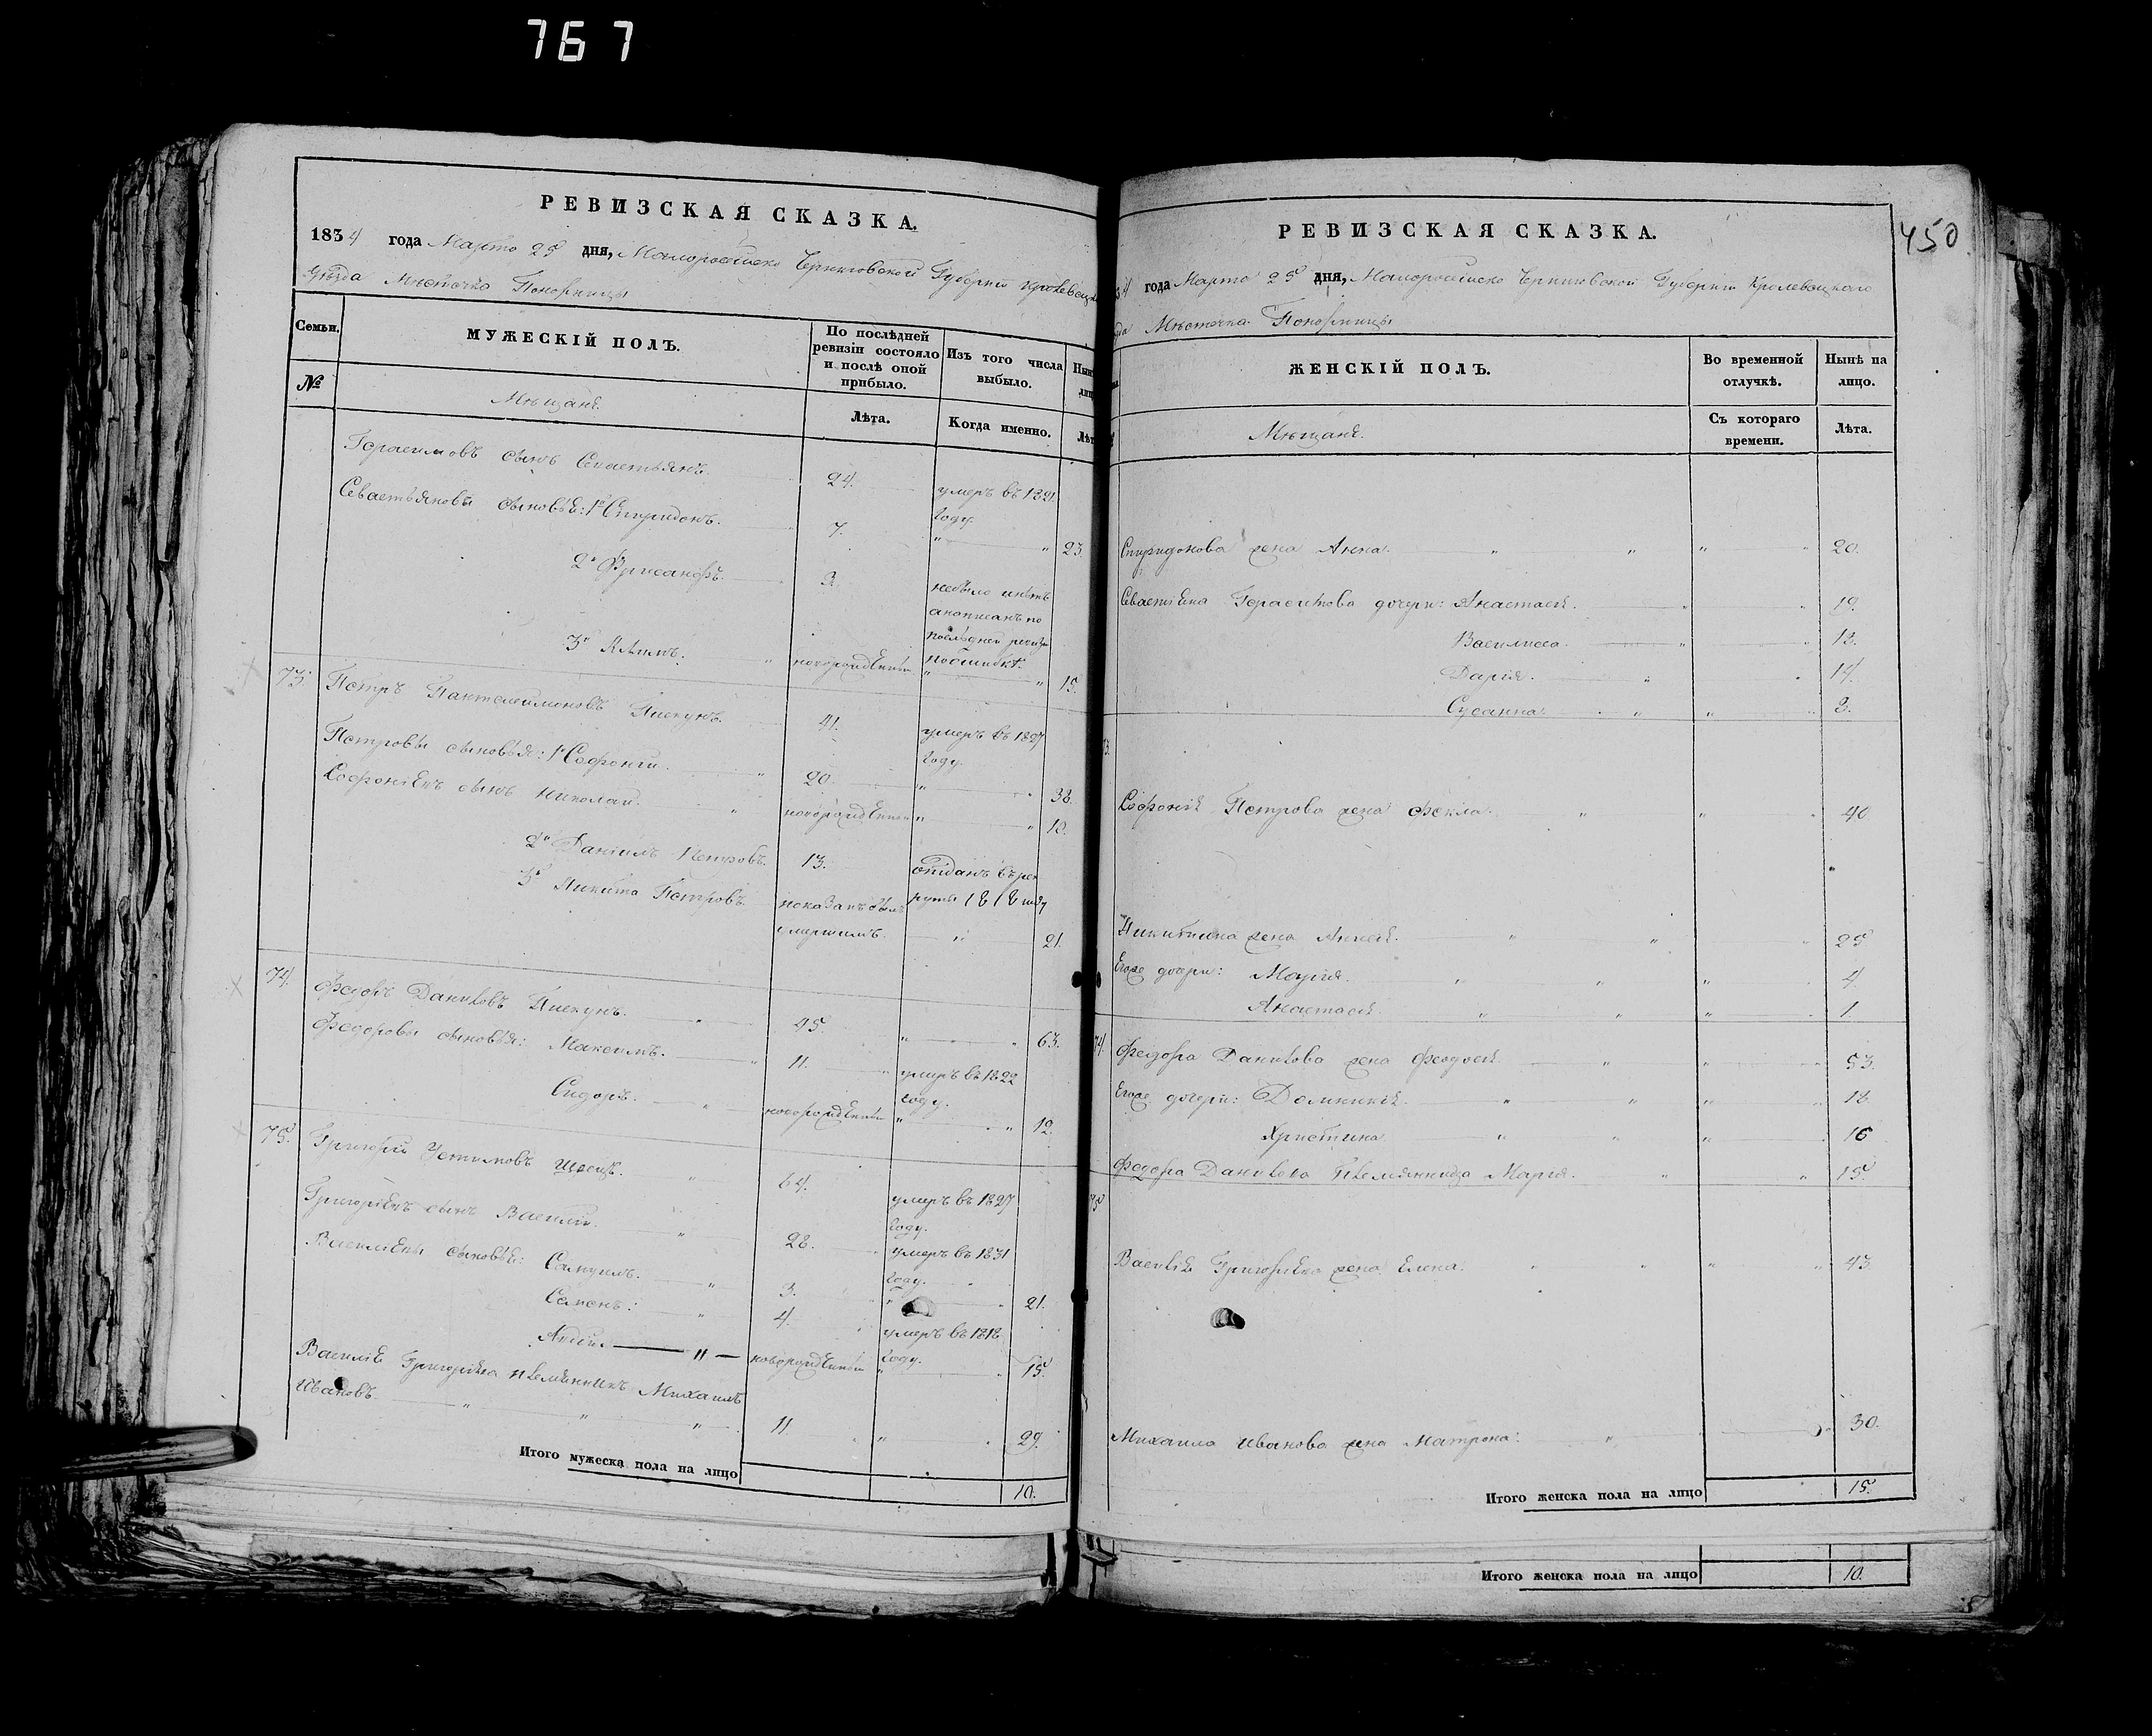 767
РЕВИЗСКАЯ СКАЗКА.
1834 года Марта 25 дня, Малороссійско Черниговской Губерніи Кролевецк
Уѣзда Мѣстечка Понорницы
Семьи.
МУЖЕСКІЙ ПОЛЪ.
По послѣдней ревизіи состояло и послѣ оной прибыло.
Изъ того числа выбыло.
№
Мѣщане.
Лѣта.
Когда именно.
Герасимовъ сынъ Севастьянъ 24. умеръ въ 1821.
году.
Севастьяновы сыновья: 1й Спиридонъ. 7. " " 23.
2й 3. небыло инѣтъ
анаписанъ по
послѣдней ревизіи
3й Климъ. " новорожденный поошибкѣ. " " 15.
73. Петръ Пантелеимоновъ Пискунъ. 41. умеръ въ 1827
году.
Петровы сыновья: 1й Софоній. " 20. " " 38.
Софоніевъ сынъ Николай. " новорожденный " " 10.
2й Даніилъ Петровъ. 13. отданъ въ рек
3й Никита Петровъ. показанъ былъ руты 1818 году
умершимъ. " 21.
74. Федоръ Даниловъ Пискунъ. " 45. " " 63.
Федоровы сыновья: Максимъ. " 11. " умеръ въ 1822
году.
Сидоръ. " новорожденный " " 12.
75. Григорій Устимовъ " 64. умеръ въ 1827
году.
Григоріевъ сынъ Василій. " 28. умеръ въ 1831
году.
Василіевы сыновья: Самуилъ. " 3. " " 21.
Семенъ: " 4. умеръ въ 1818
году.
" новорожденный " " 15.
Василія Григоріева племянникъ Михаилъ
Ивановъ. " " " 11. " 29.
Итого мужеска пола на лицо 10.
450
РЕВИЗСКАЯ СКАЗКА.
4 года Марта 25 дня, Малороссійско Черниговской Губерніи Кролевецкаго
да Мѣстечка Понорницы
ЖЕНСКІЙ ПОЛЪ.
Во временной отлучкѣ.
Нынѣ на лицо.
Мѣщане.
Съ котораго времени.
Лѣта.
Спиридонова жена Анна. " " " " 20.
Севастіяна Герасимова дочери: Анастасія. " " 19.
Василиса. " " 18.
Дарія. " " 14.
Сусанна. " " " 3.
73.
Софонія Петрова жена Фекла. " " " 40
Никитина жена " " " 25
Егоже дочери: Марія. " " " " 4
Анастасія. " " " 1.
74. Федора Данилова жена Феодосія. " " " 53.
Егоже дочери: Домникія. " " " " 18
Христина. " " " 16
Федора Данилова племянница Марія. " " 15.
75
Василія Григоріева жена Елена. " " " " 43.
Михаила Иванова жена Матрона. " " 30.
Итого женска пола на лицо 15.
Итого женска пола на лицо 10.